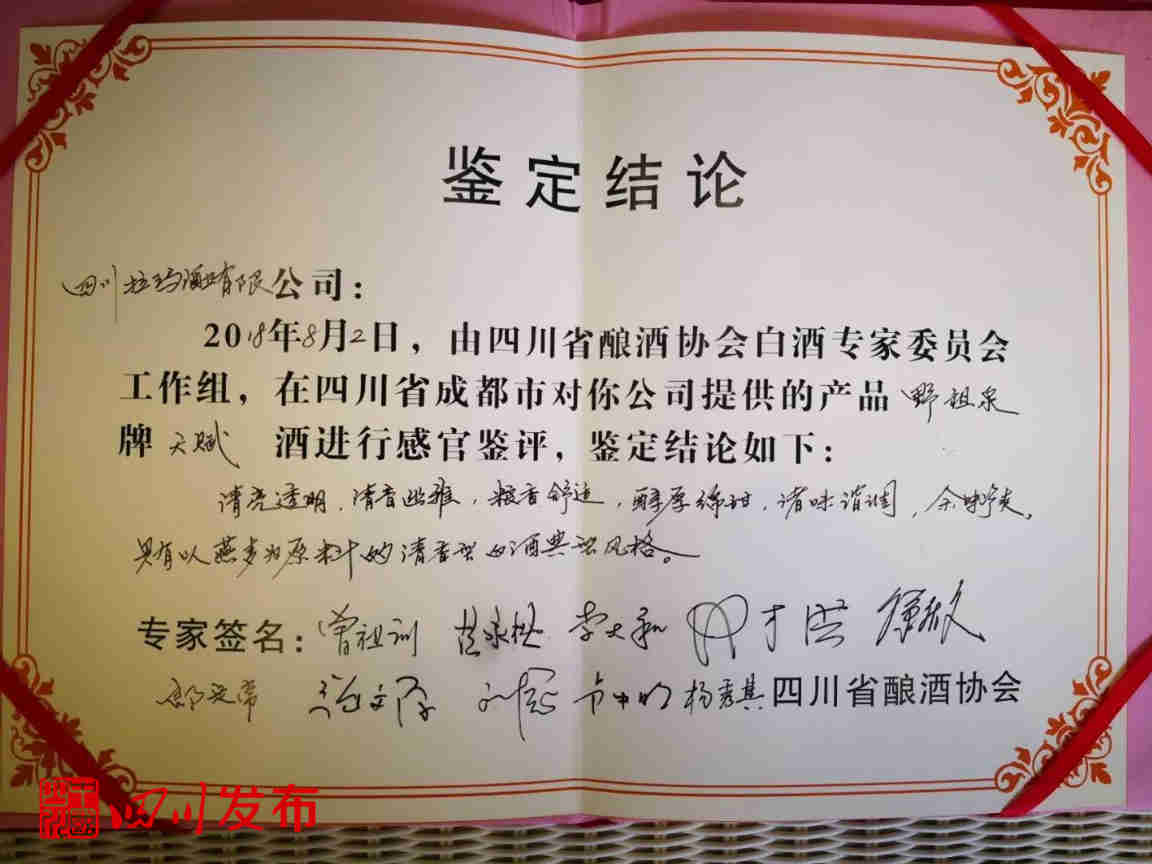 鉴定结论
四川拉玛酒业有限公司：
2018年8月2日，由四川省酿酒协会白酒专家委员会
工作组，在四川省成都市对你公司提供的产品野祖泉
牌天赋 酒进行感官鉴评，鉴定结论如下：
清亮透明，清香幽雅，粮香舒适，醇厚绵甜，诸味谐调，余味爽，
具有以燕麦为原料的清香型白酒典型风格。
专家签名：曾祖训 李大和 才洪
杨秀其 四川省酿酒协会
四川发布